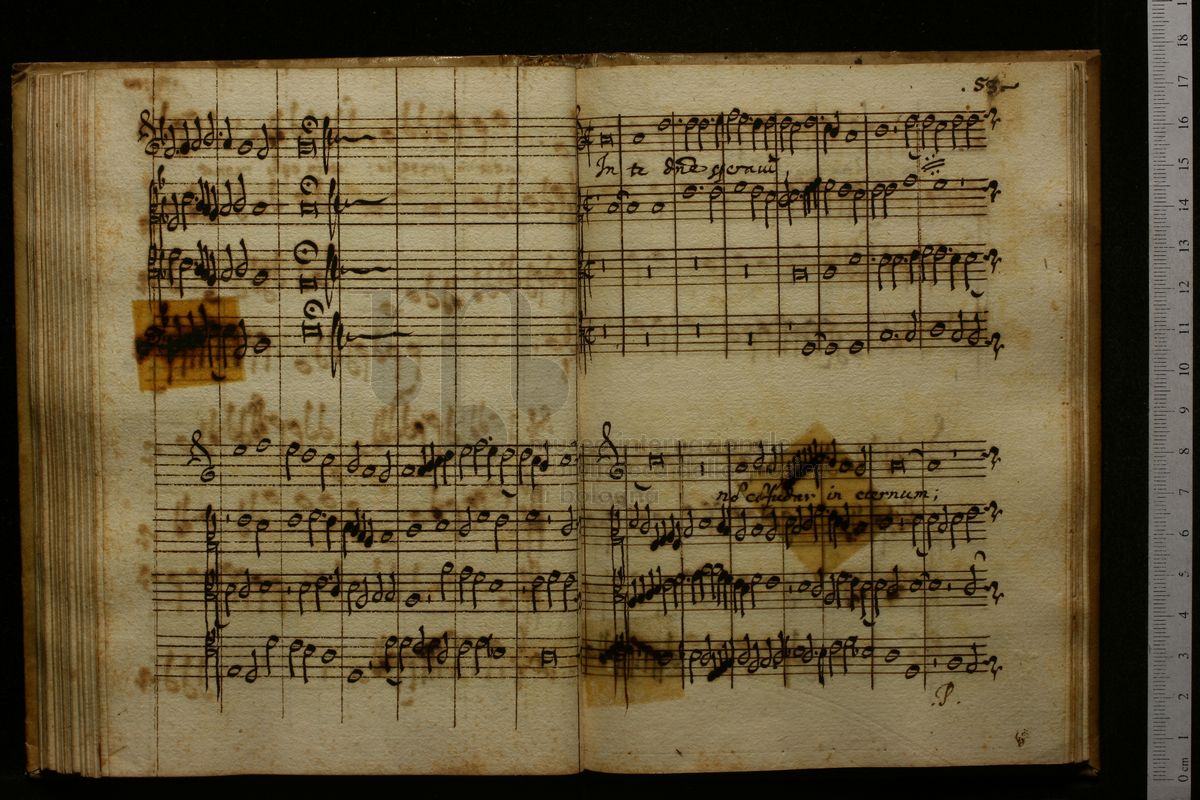 . 53
In te dñe speravi
nō cōfundar in eternum ;
.P.
museo internazionale
di bologna
0 cm 1 2 3 4 5 6 7 8 9 10 11 12 13 14 15 16 17 18